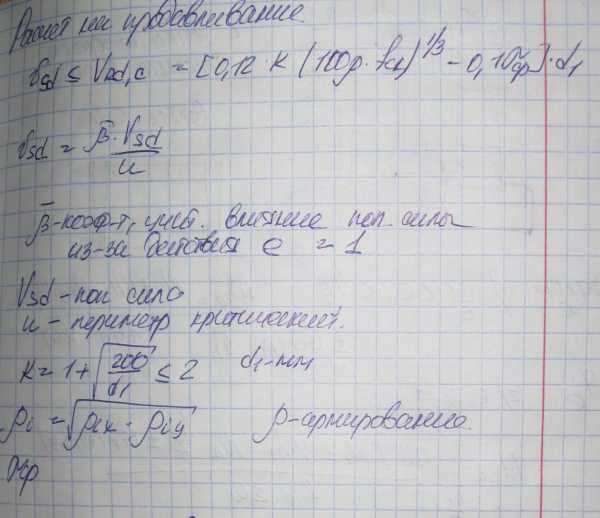 Расчет на продавливание.
Vsd ≤ VRd,c = [0,12·K (100ρ·fck)^1/3 - 0,1σcp]·d1
Vsd = β̄·Vsd / u
β̄-коэф-т, учит. влияние поп. силы
из-за действия e = 1
Vsd - поп сила
u - периметр критический.
K = 1+√(200/d1) ≤ 2 d1-мм
ρi = √(ρix · ρiy) ρ-армирование.